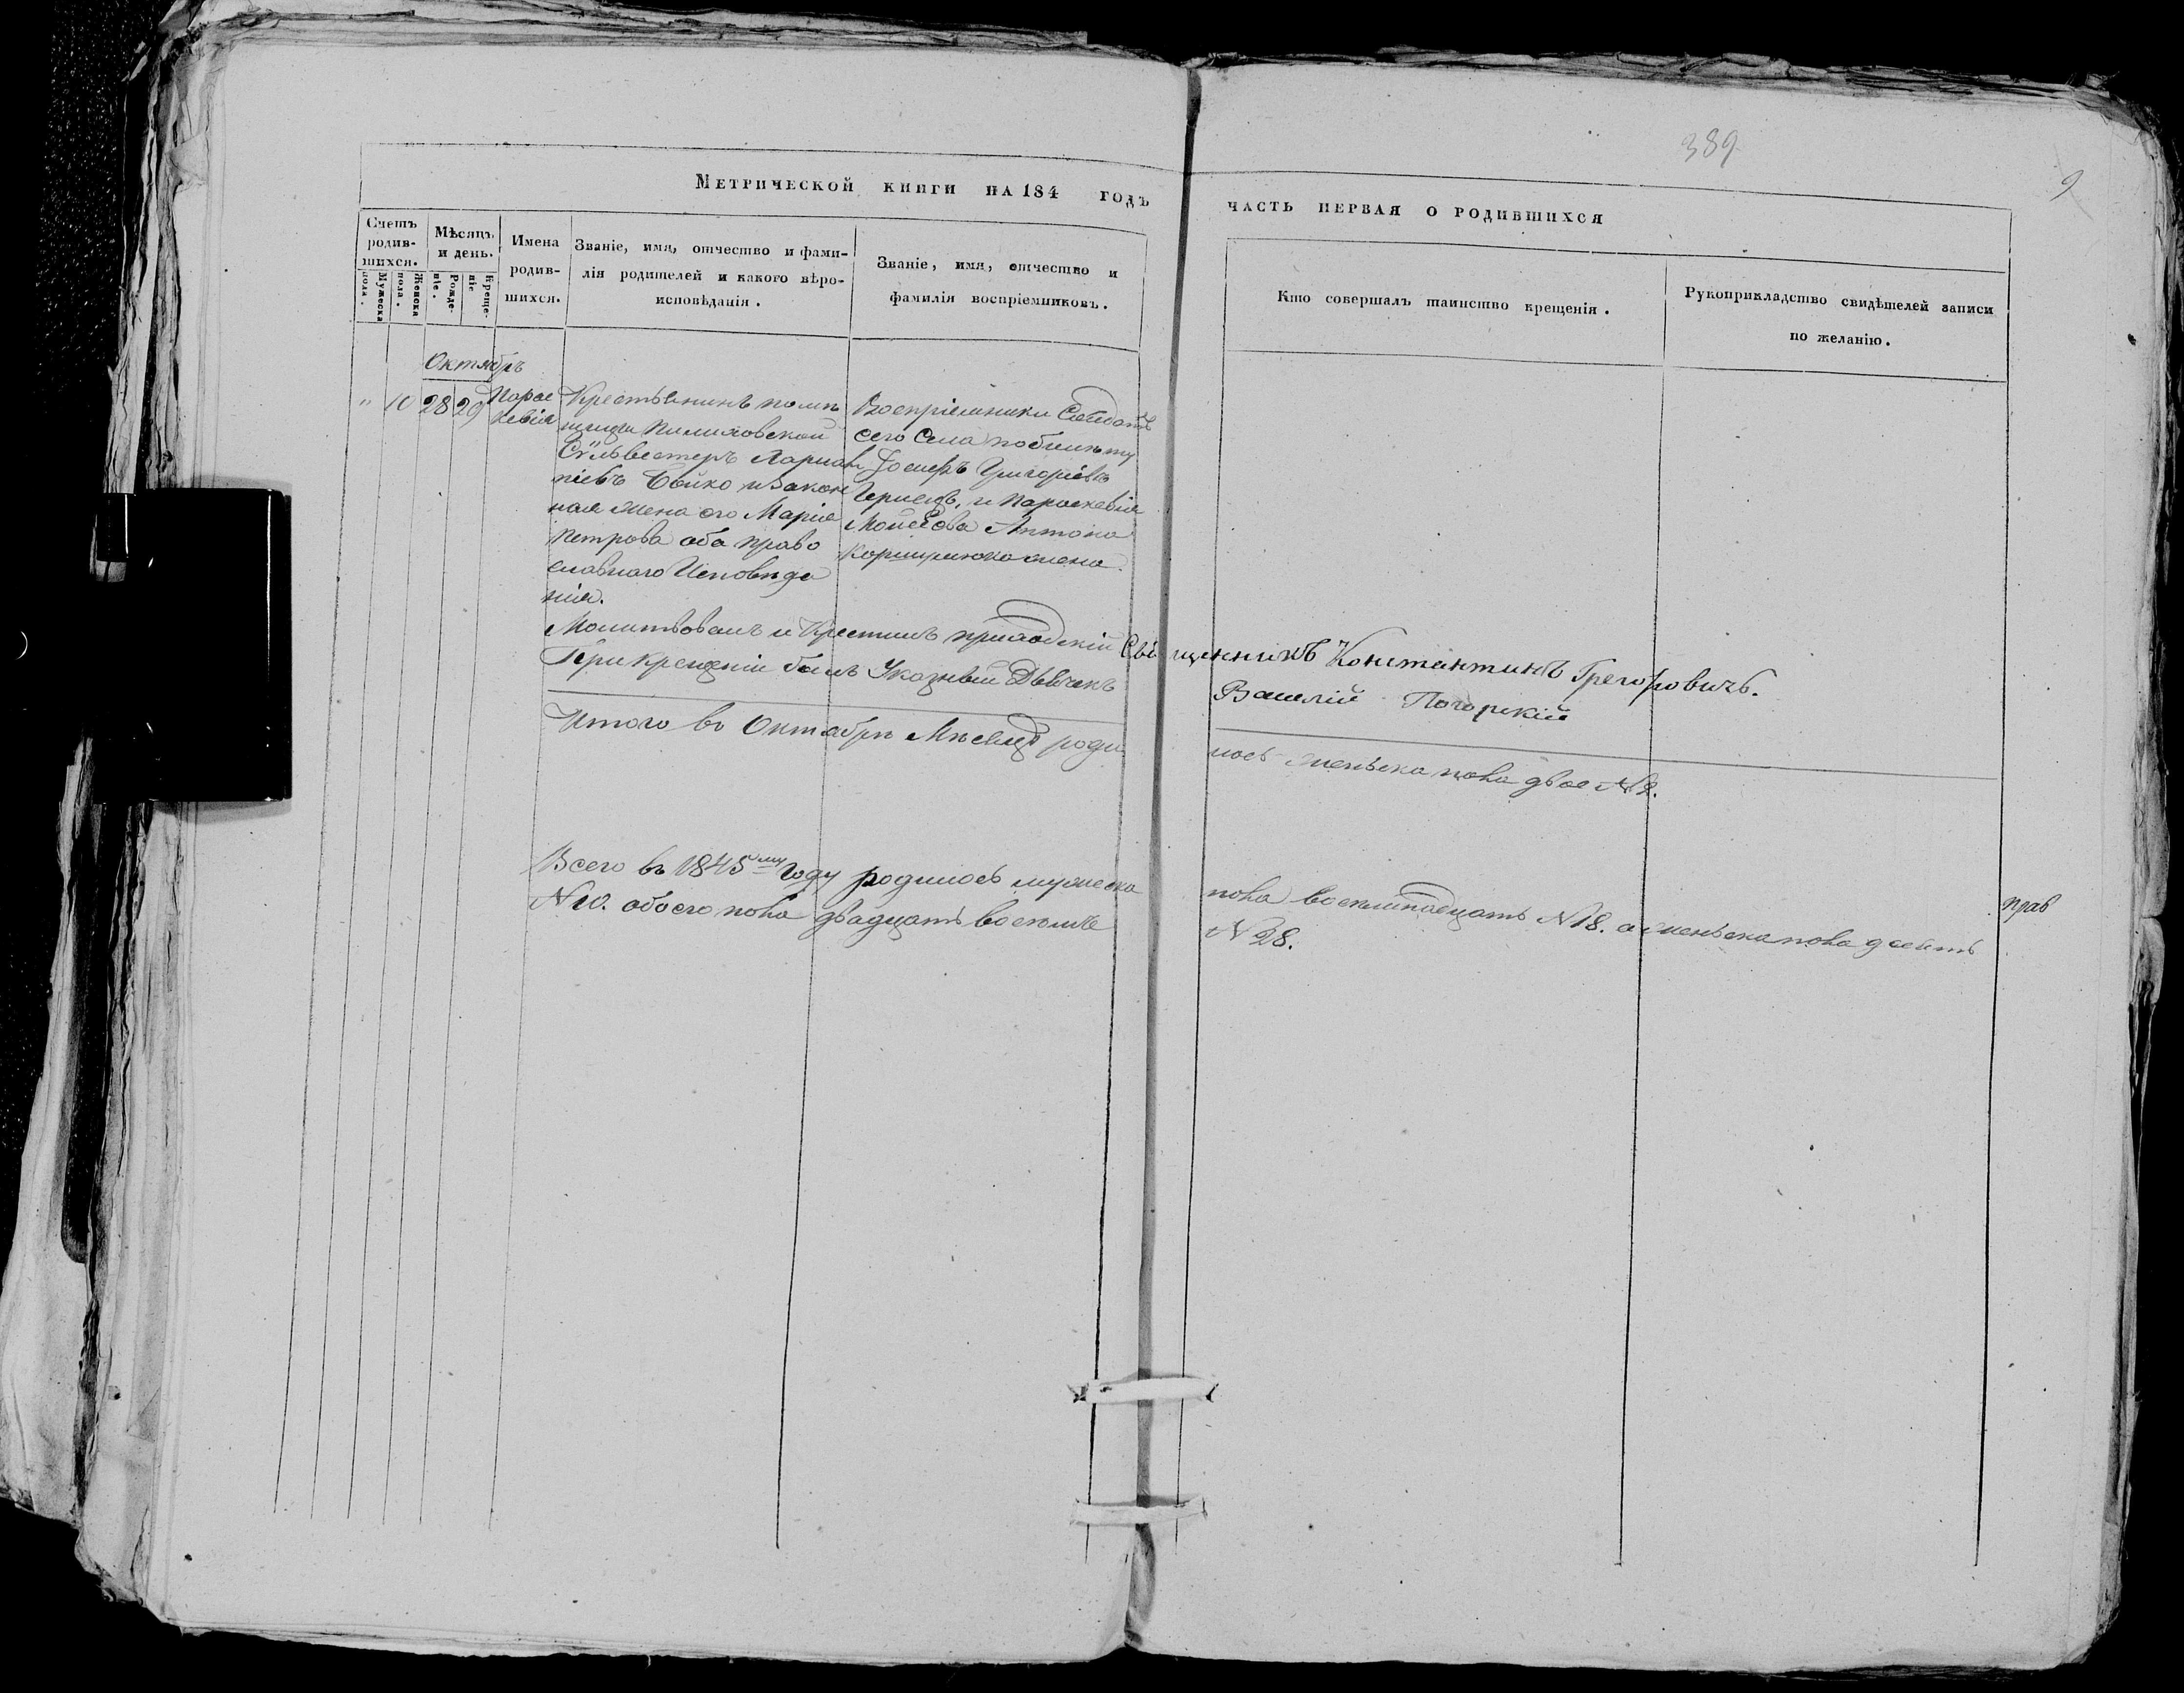 389
9
Метрической книги на 184 годъ
часть первая о родившихся
Счетъ родив-шихся.
Мужеска пола.
Женска пола.
Мѣсяцъ и день.
Рожде-ніе.
Креще-ніе
Имена родив-шихся.
Званіе, имя, отчество и фами-
лія родителей и какого вѣро-
исповѣданія.
Званіе, имя, отчество и
фамилія воспріемниковъ.
Кто совершалъ таинство крещенія.
Рукоприкладство свидѣтелей записи
по желанію.
Октябрь
" 10 28 29
Парас
кевія
Крестьянинъ помѣ
щицы
Сѵльвестеръ Ларіон
Бойко и закон
ная жена его Марія
Петрова оба право
славнаго Исповѣда
нія.
Воспріемники Солдатъ
сего Села
Іосифъ Григоріевъ
и Параскевія
Антона
жена.
Молитвовалъ и Крестилъ приходскій Священникъ Константинъ Грегоровичъ.
При крещеніи былъ Указный Дьячекъ Василій Погорскій
Итого въ Октябрѣ Мѣсяцѣ роди лось женска пола двое №2.
Всего въ 1845му Году родилось мужеска пола восемнадцать №18. а женска пола десять
№10. обоего пола двадцать восемь №28.
прав